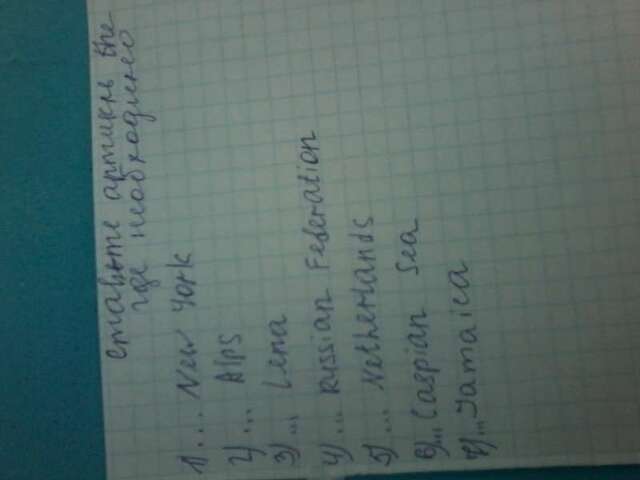 ставьте артикль the
где необходимо
1) ... New York
2) ... Alps
3) ... Lena
4) ... Russian Federation
5) ... Netherlands
6) ... Caspian Sea
7) ... Jamaica